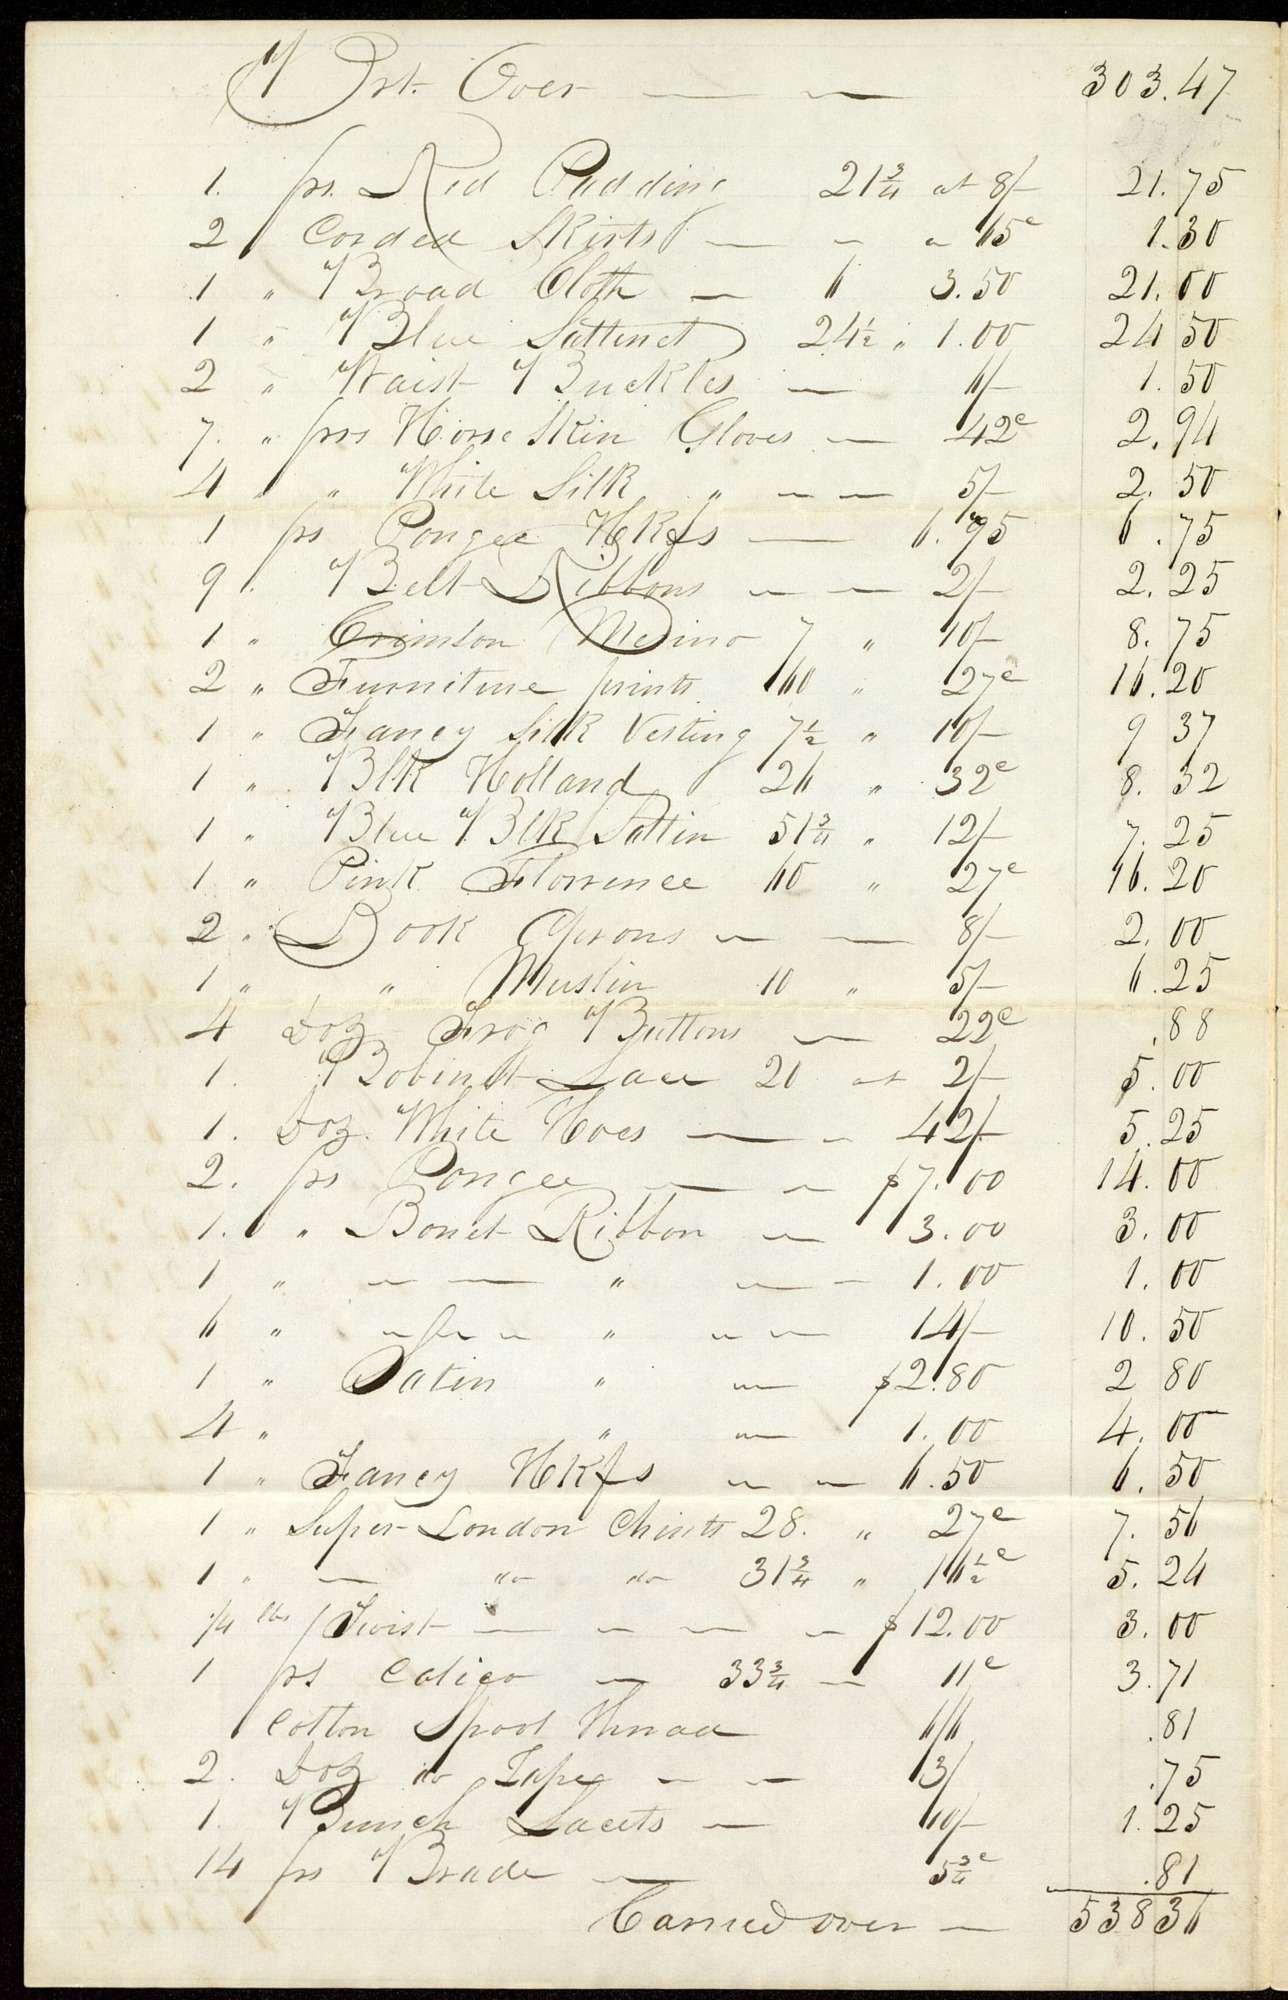 Brt. Over — — 303.47
1. ps. Red Padding 21 3/4 at 8/- 21.75
2 Corded Skirts — " " 65c 1.30
1 " Broad Cloth — 6 3.50 21.00
1 " Blue Sattinet 24 1/2 " 1.00 24 50
2 " Waist Buckles — 6/- 1.50
7. " prs Horse Skin Gloves — 42c 2.94
4 " " White Silk " — — 5/- 2.50
1 ps Pongee Hkfs — 6.75 6.75
9 " Belt Ribbons — — 2/- 2.25
1 " Crimson Merino 7 " 10/- 8.75
2 " Furniture prints 60 " 27c 16.20
1 " Fancy Silk Vesting 7 1/2 " 10/- 9 37
1 " Blk Holland 26 " 32c 8.32
1 " Blue Blk Sattin 51 3/4 " 12/- 7.25
1 " Pink Florrence 60 " 27c 16.20
2 " Book Aprons — — 8/- 2.00
1 " " Muslin 10 " 5/- 6.25
4 Doz Frog Buttons — 22c .88
1. Bobinet Lace 20 at 2/- 5.00
1. Doz. White Hoes — — 42/- 5.25
2. ps Pongee — — $7.00 14.00
1. " Bonet Ribbon — 3.00 3.00
1 " — — " — — 1.00 1.00
6 " — do — " — — 14/- 10.50
1 " Satin " — $2.80 2 80
4 " " — 1.00 4.00
1 " Fancy Hkfs — — 6.50 6.50
1 " Super London Chints 28. " 27c 7.56
1 " — do do 31 3/4 " 16 1/2c 5.24
1/4 lbs Twist — — — — $12.00 3.00
1 ps Calico — 33 3/4 — 11c 3.71
Cotton Spool Thread 6/6 .81
2. Doz do Tape — — 3/ .75
1. Bunch Lacets — 10/- 1.25
14 ps Brade — 5 3/4c .81
Carried over — 538 36